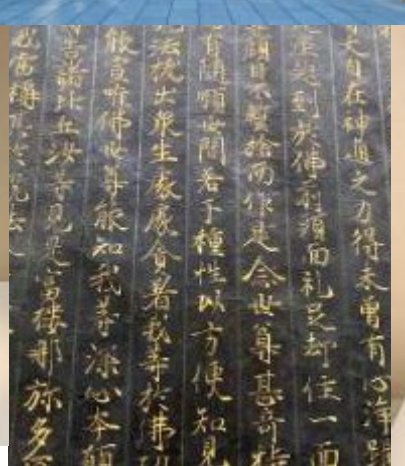 大自在神通之力得未曾有心淨踊
座起到於佛前頭面礼足却住一面
顔目不暫捨而作是念世尊甚奇特
有隨順世間若干種性以方便知見
説法拔出衆生處處貪著我等於佛功
能宣唯佛世尊能知我等深心本願
告諸比丘汝等見是富樓那弥多羅
我常稱其於説法人